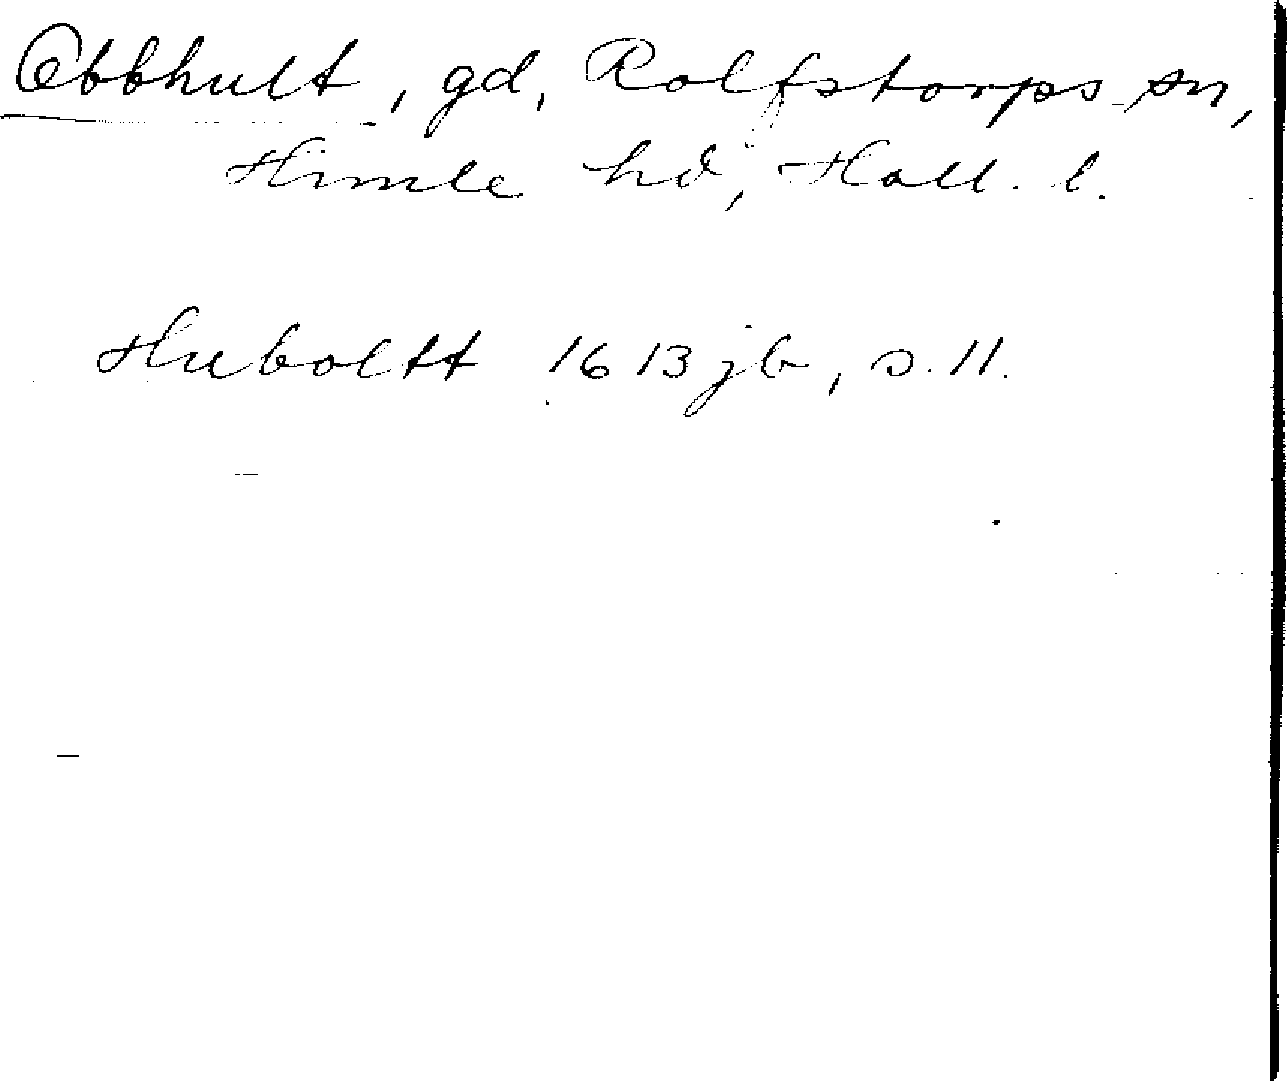 Obbhult, gd, Rolfstorps sn,
Himle hd, Hall. l.
Huboltt 1613 jb, s. 11.